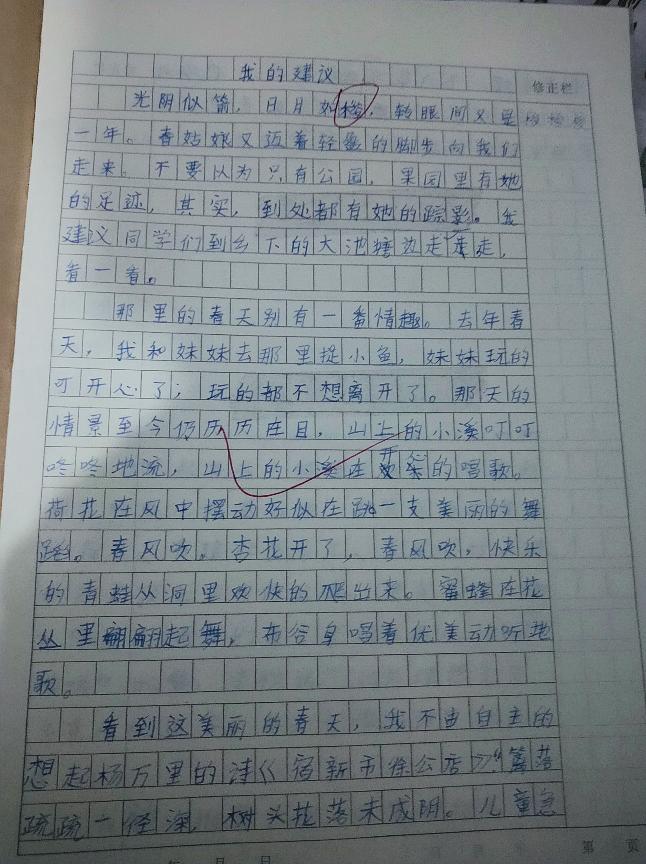 我的建议
修正栏
光阴似箭，日月如梭，转眼间又是
梭梭梭
一年。春姑娘又迈着轻盈的脚步向我们
走来。不要以为只有公园，果园里有她
的足迹，其实，到处都有她的踪影。我
建议同学们到乡下的大池塘边走走，
看一看。
那里的春天别有一番情趣。去年春
天，我和妹妹去那里捉小鱼，妹妹玩的
可开心了；玩的都不想离开了。那天的
情景至今仍历历在目，山上的小溪叮叮
咚咚地流，山上的小溪在开心的唱歌。
荷花在风中摆动好似在跳一支美丽的舞
蹈。春风吹，杏花开了，春风吹，快乐
的青蛙从洞里欢快的爬出来。蜜蜂在花
丛里翩翩起舞，布谷鸟唱着优美动听地
歌。
看到这美丽的春天，我不由自主的
想起杨万里的诗《宿新市徐公店》“篱落
疏疏一径深，树头花落未成阴。儿童急
年 月 日
第 页